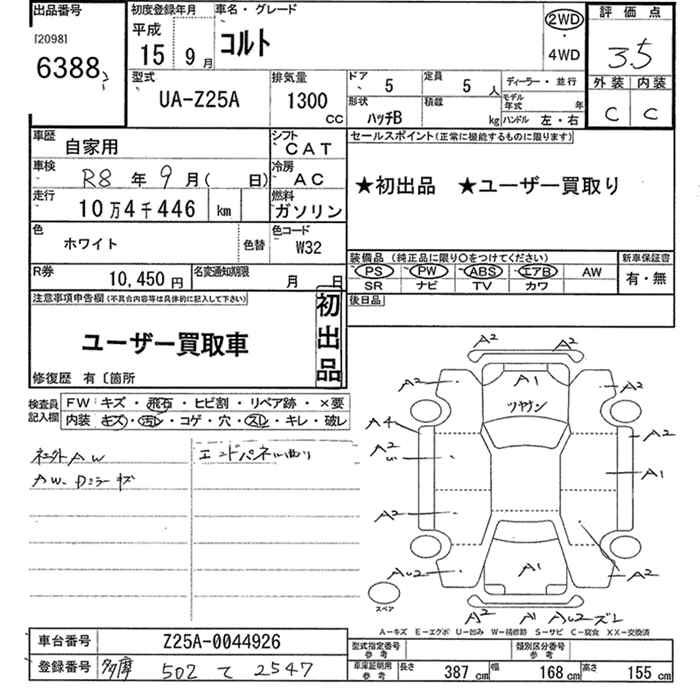 出品番号
[2098]
6388
初度登録年月
平成
15 9月
車名・グレード
コルト
2WD
・
4WD
評価点
3.5
外装 内装
C C
型式
UA-Z25A
排気量
1300
CC
ドア 5
定員 5 人
形状 ハッチB
積載 kg
ディーラー・並行
モデル年式 年
ハンドル 左・右
車歴
自家用
シフト
CAT
車検
R8 年 9 月( 日)
冷房
AC
走行
10万4千446 km
燃料
ガソリン
色
ホワイト
色替
色コード
W32
R券
10,450円
名変通知期限
月 日
セールスポイント(正常に機能するものに限ります)
★初出品 ★ユーザー買取り
装備品(純正品に限り○をつけてください)
PS PW ABS エアB AW
SR ナビ TV カワ
新車保証書
有・無
後日品
注意事項申告欄(不具合内容等は具体的に記入して下さい)
ユーザー買取車
初出品
修復歴 有〔箇所
検査員記入欄
FW:キズ・飛石・ヒビ割・リペア跡・×要
内装:キズ・汚レ・コゲ・穴・スレ・キレ・破レ
社外AW
AW、Dミラーキズ
エンドパネル曲り
A2 A2
A2 A1 A2
ツヤナシ
A4 A2
A2
A1
A2
AU2 A1 A2
スペア
A2 A1 AU2ズレ
A-キズ E-エクボ U-凹み W-補修跡 S-サビ C-腐食 XX-交換済
車台番号 Z25A-0044926
登録番号 多摩 502 て 2547
型式指定番号 参考
類別区分番号 参考
車庫証明用 参考
長さ 387cm 幅 168cm 高さ 155cm